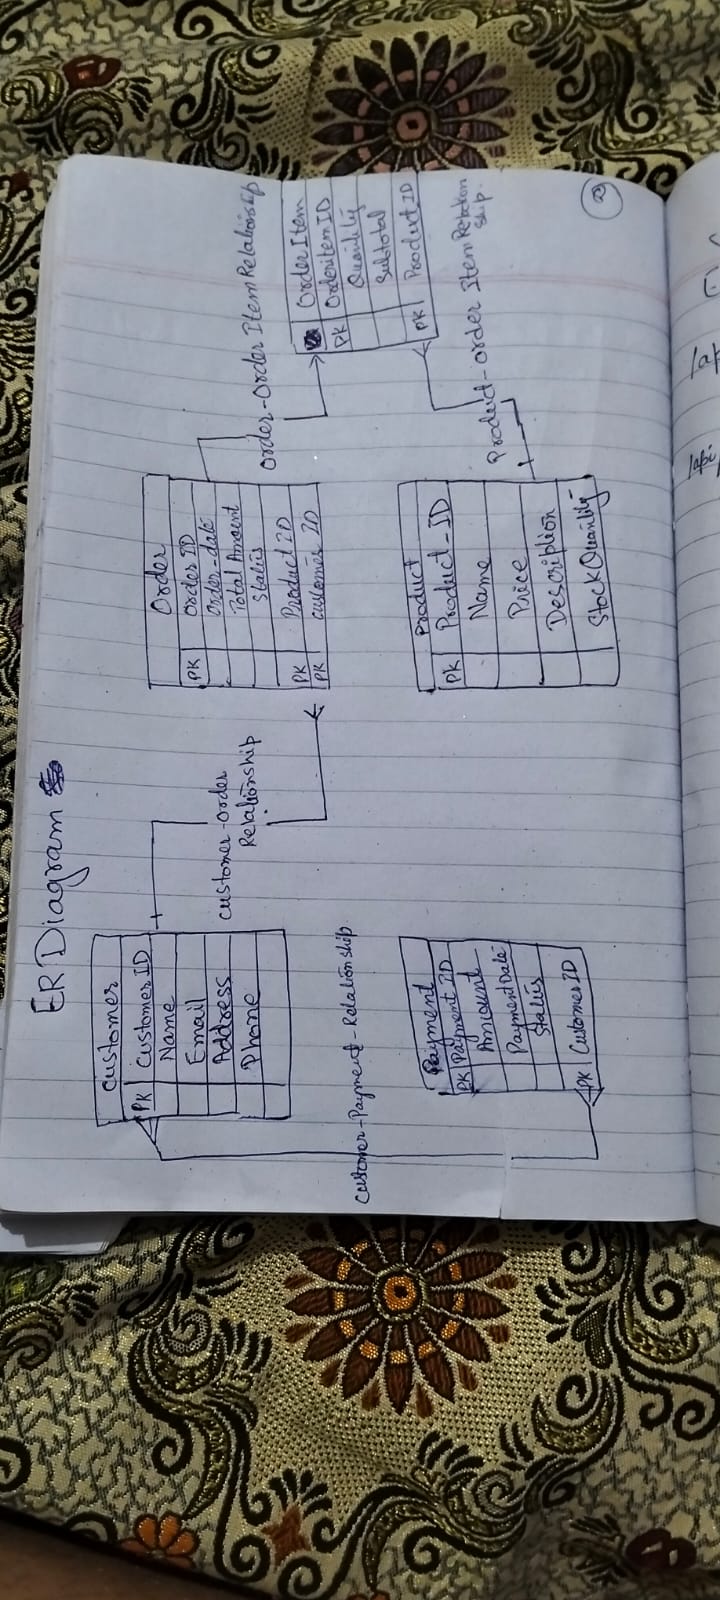 ER Diagram
Customer
PK CustomerID
Name
Email
Address
Phone
customer-order
Relationship
Order
PK Order ID
Order-date
Total Amount
Status
PK Product ID
PK customer ID
Order-Order Item Relationship
Order Item
PK OrderitemID
Quantity
Subtotal
PK Product ID
Customer-Payment-Relationship
Payment
PK Payment ID
Amount
PaymentDate
Status
PK Customer ID
Product
PK Product-ID
Name
Price
Description
StockQuantity
Product-order Item Relation
ship.
/api